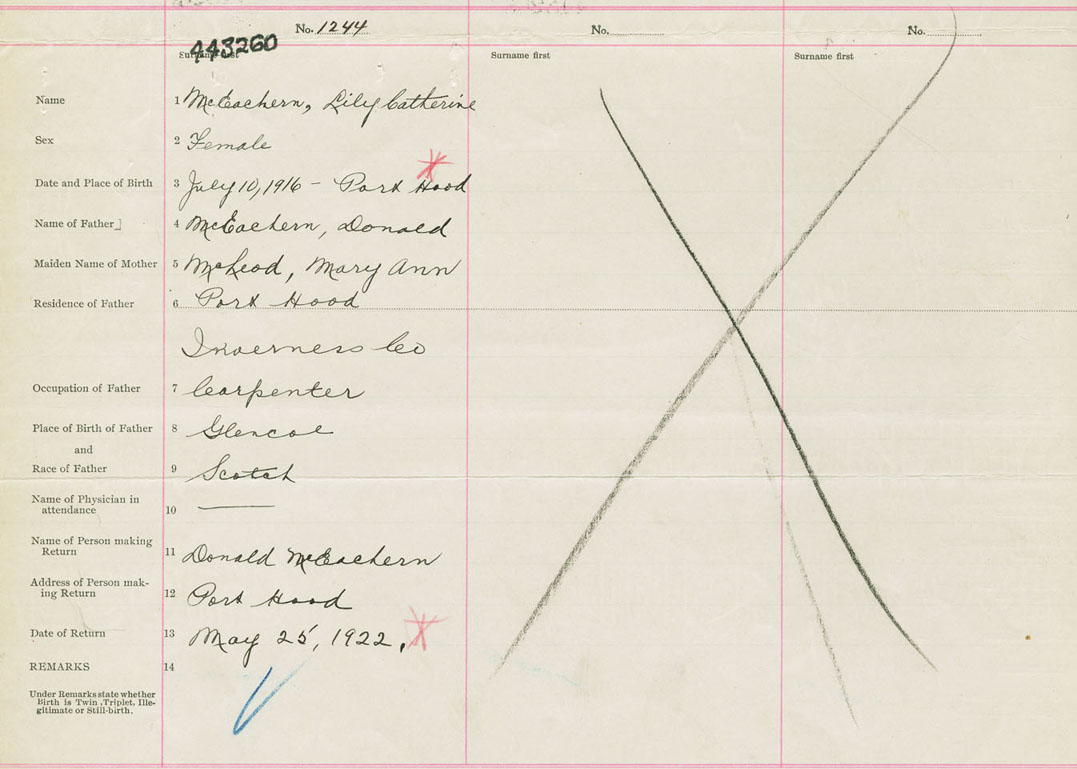 No. 1244 No. No.
443260
Surname first Surname first Surname first
Name 1 McEachern, Lily Catherine
Sex 2 Female
Date and Place of Birth 3 July 10, 1916 - Port Hood
Name of Father 4 McEachern, Donald
Maiden Name of Mother 5 McLeod, Mary Ann
Residence of Father 6 Port Hood
Inverness Co
Occupation of Father 7 Carpenter
Place of Birth of Father 8 Glencoe
and
Race of Father 9 Scotch
Name of Physician in
attendance 10
Name of Person making
Return 11 Donald McEachern
Address of Person mak-
ing Return 12 Port Hood
Date of Return 13 May 25, 1922.
REMARKS 14
Under Remarks state whether
Birth is Twin, Triplet, Ille-
gitimate or Still-birth.